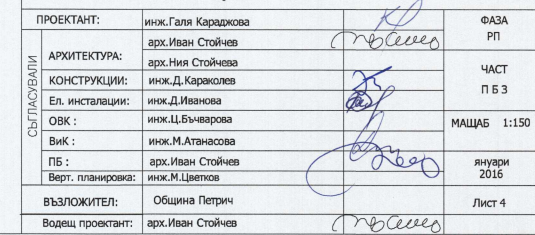 ПРОЕКТАНТ: инж.Галя Караджова ФАЗА
РП
СЪГЛАСУВАЛИ
АРХИТЕКТУРА: арх.Иван Стойчев
арх.Ния Стойчева
ЧАСТ
П Б З
КОНСТРУКЦИИ: инж.Д.Караколев
Ел. инсталации: инж.Д.Иванова
ОВК : инж.Ц.Бъчварова МАЩАБ 1:150
ВиК : инж.М.Атанасова
ПБ : арх.Иван Стойчев януари
2016
Верт. планировка: инж.М.Цветков
ВЪЗЛОЖИТЕЛ: Община Петрич Лист 4
Водещ проектант: арх.Иван Стойчев